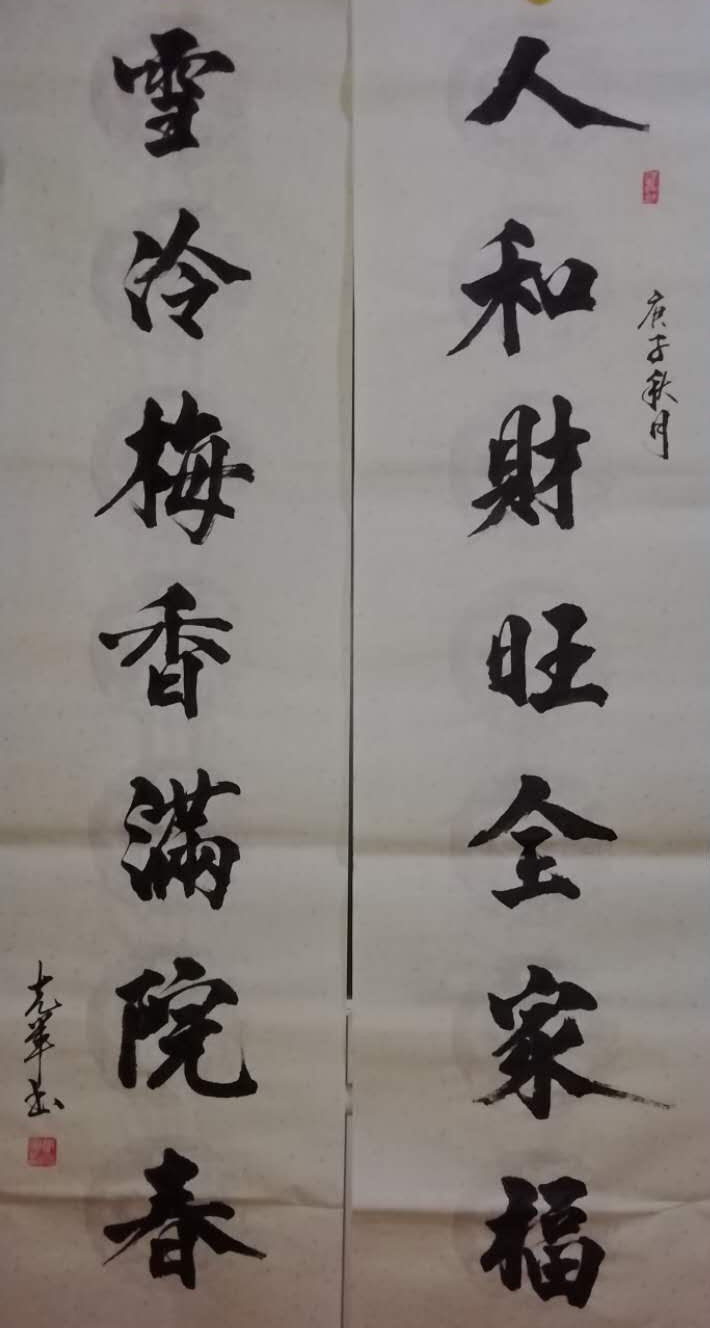 人和財旺全家福
庚子秋月
雪冷梅香滿院春
书